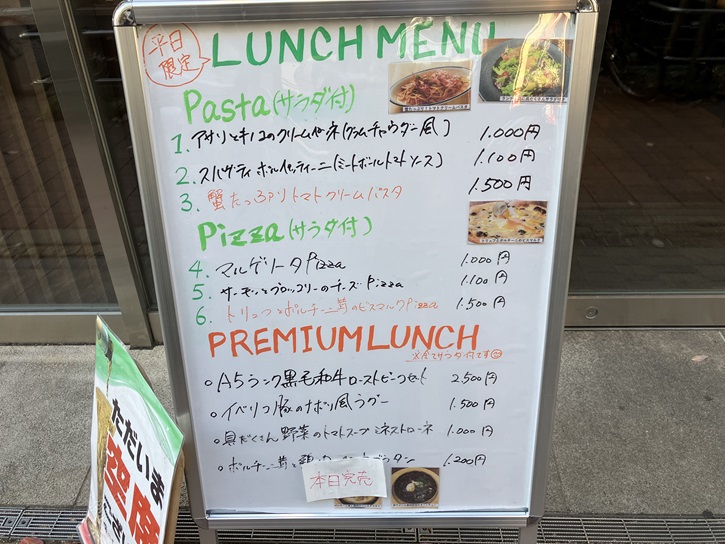 平日
限定
LUNCH MENU
Pasta(サラダ付)
1. アサリとキノコのクリームペンネ(クラムチャウダー風) 1.000円
2. スパゲティ ポルペッティーニ(ミートボールトマトソース) 1.100円
3. 蟹たっぷりトマトクリームパスタ 1.500円
Pizza(サラダ付)
4. マルゲリータPizza 1.000円
5 サーモンとブロッコリーのチーズPizza 1.100円
6. トリュフとポルチーニ茸のビスマルクPizza 1.500円
PREMIUM LUNCH
※全てサラダ付です
○A5ランク黒毛和牛ローストビーフセット 2.500円
○イベリコ豚のナポリ風ラグー 1.500円
○具だくさん野菜のトマトスープ ミネストローネ 1.000円
○ポルチーニ茸と鶏 1.200円
本日完売
ただいま
空席